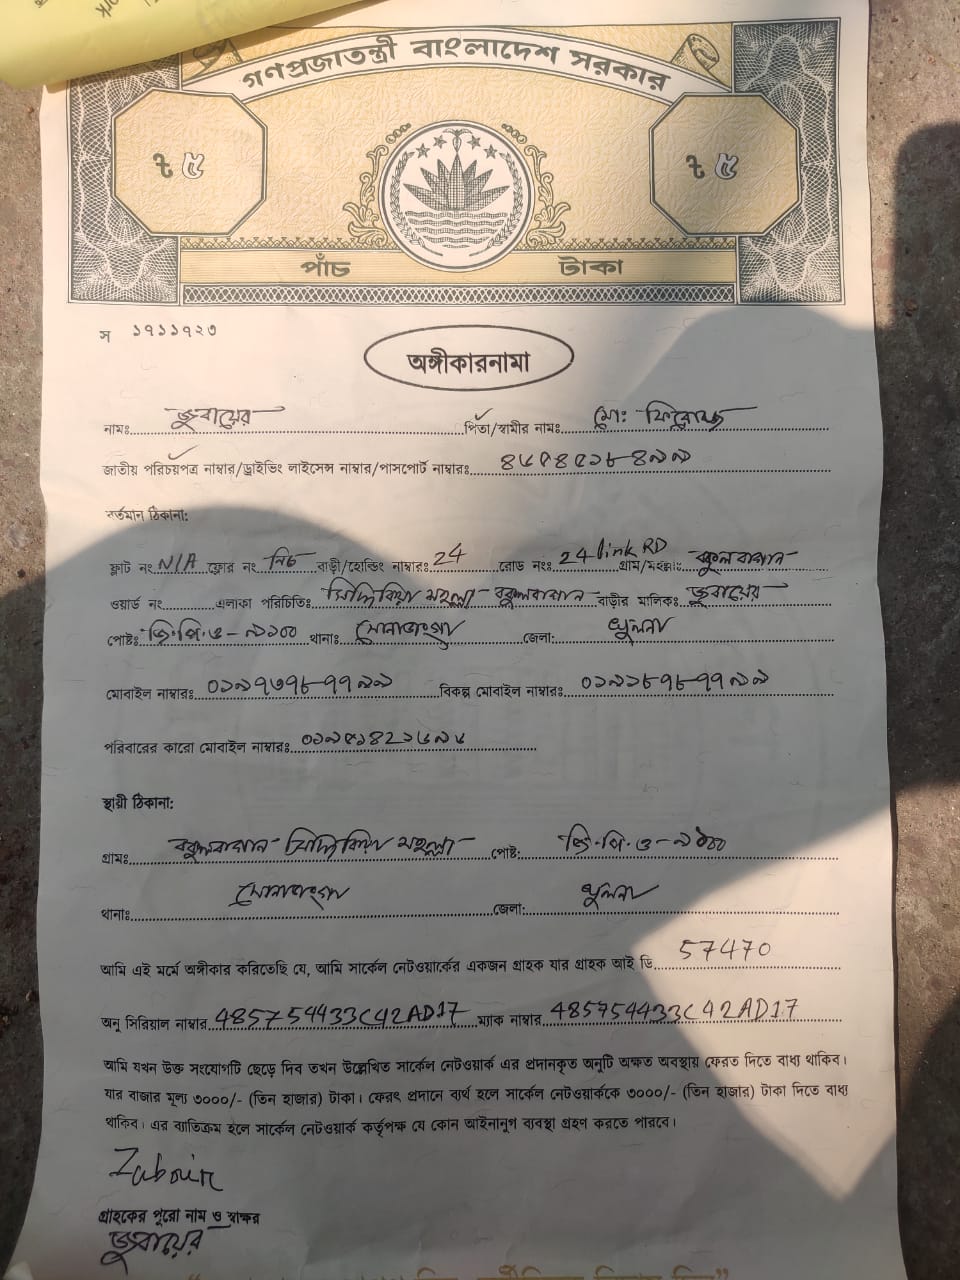 গণপ্রজাতন্ত্রী বাংলাদেশ সরকার
৳ ৫ ৳ ৫
পাঁচ টাকা
স ১৭১১৭২৩
অঙ্গীকারনামা
নামঃ জুবায়ের পিতা/স্বামীর নামঃ মোঃ ফিরোজ
জাতীয় পরিচয়পত্র নাম্বার/ড্রাইভিং লাইসেন্স নাম্বার/পাসপোর্ট নাম্বারঃ
বর্তমান ঠিকানা:
ফ্লাট নং N/A ফ্লোর নং নিচ বাড়ী/হোল্ডিং নাম্বারঃ 24 রোড নংঃ 24 link RD গ্রাম/মহল্লাঃ বকুলবাগান
ওয়ার্ড নং এলাকা পরিচিতিঃ সিদ্দিকিয়া মহল্লা- বকুলবাগান বাড়ীর মালিকঃ জুবায়ের
পোষ্টঃ জি.পি.ও - ৯১০০ থানাঃ সোনাডাংগা জেলা: খুলনা
মোবাইল নাম্বারঃ বিকল্প মোবাইল নাম্বারঃ
পরিবারের কারো মোবাইল নাম্বারঃ
স্থায়ী ঠিকানা:
গ্রামঃ বকুলবাগান- সিদ্দিকিয়া মহল্লা পোষ্ট: জি.পি.ও - ৯১০০
থানাঃ সোনাডাংগা জেলা: খুলনা
আমি এই মর্মে অঙ্গীকার করিতেছি যে, আমি সার্কেল নেটওয়ার্কের একজন গ্রাহক যার গ্রাহক আই ডি 57470
অনু সিরিয়াল নাম্বার 48575443 ম্যাক নাম্বার
আমি যখন উক্ত সংযোগটি ছেড়ে দিব তখন উল্লেখিত সার্কেল নেটওয়ার্ক এর প্রদানকৃত অনুটি অক্ষত অবস্থায় ফেরত দিতে বাধ্য থাকিব।
যার বাজার মূল্য ৩০০০/- (তিন হাজার) টাকা। ফেরৎ প্রদানে ব্যর্থ হলে সার্কেল নেটওয়ার্ককে ৩০০০/- (তিন হাজার) টাকা দিতে বাধ্য
থাকিব। এর ব্যতিক্রম হলে সার্কেল নেটওয়ার্ক কর্তৃপক্ষ যে কোন আইনানুগ ব্যবস্থা গ্রহণ করতে পারবে।
Zubair
গ্রাহকের পুরো নাম ও স্বাক্ষর
জুবায়ের